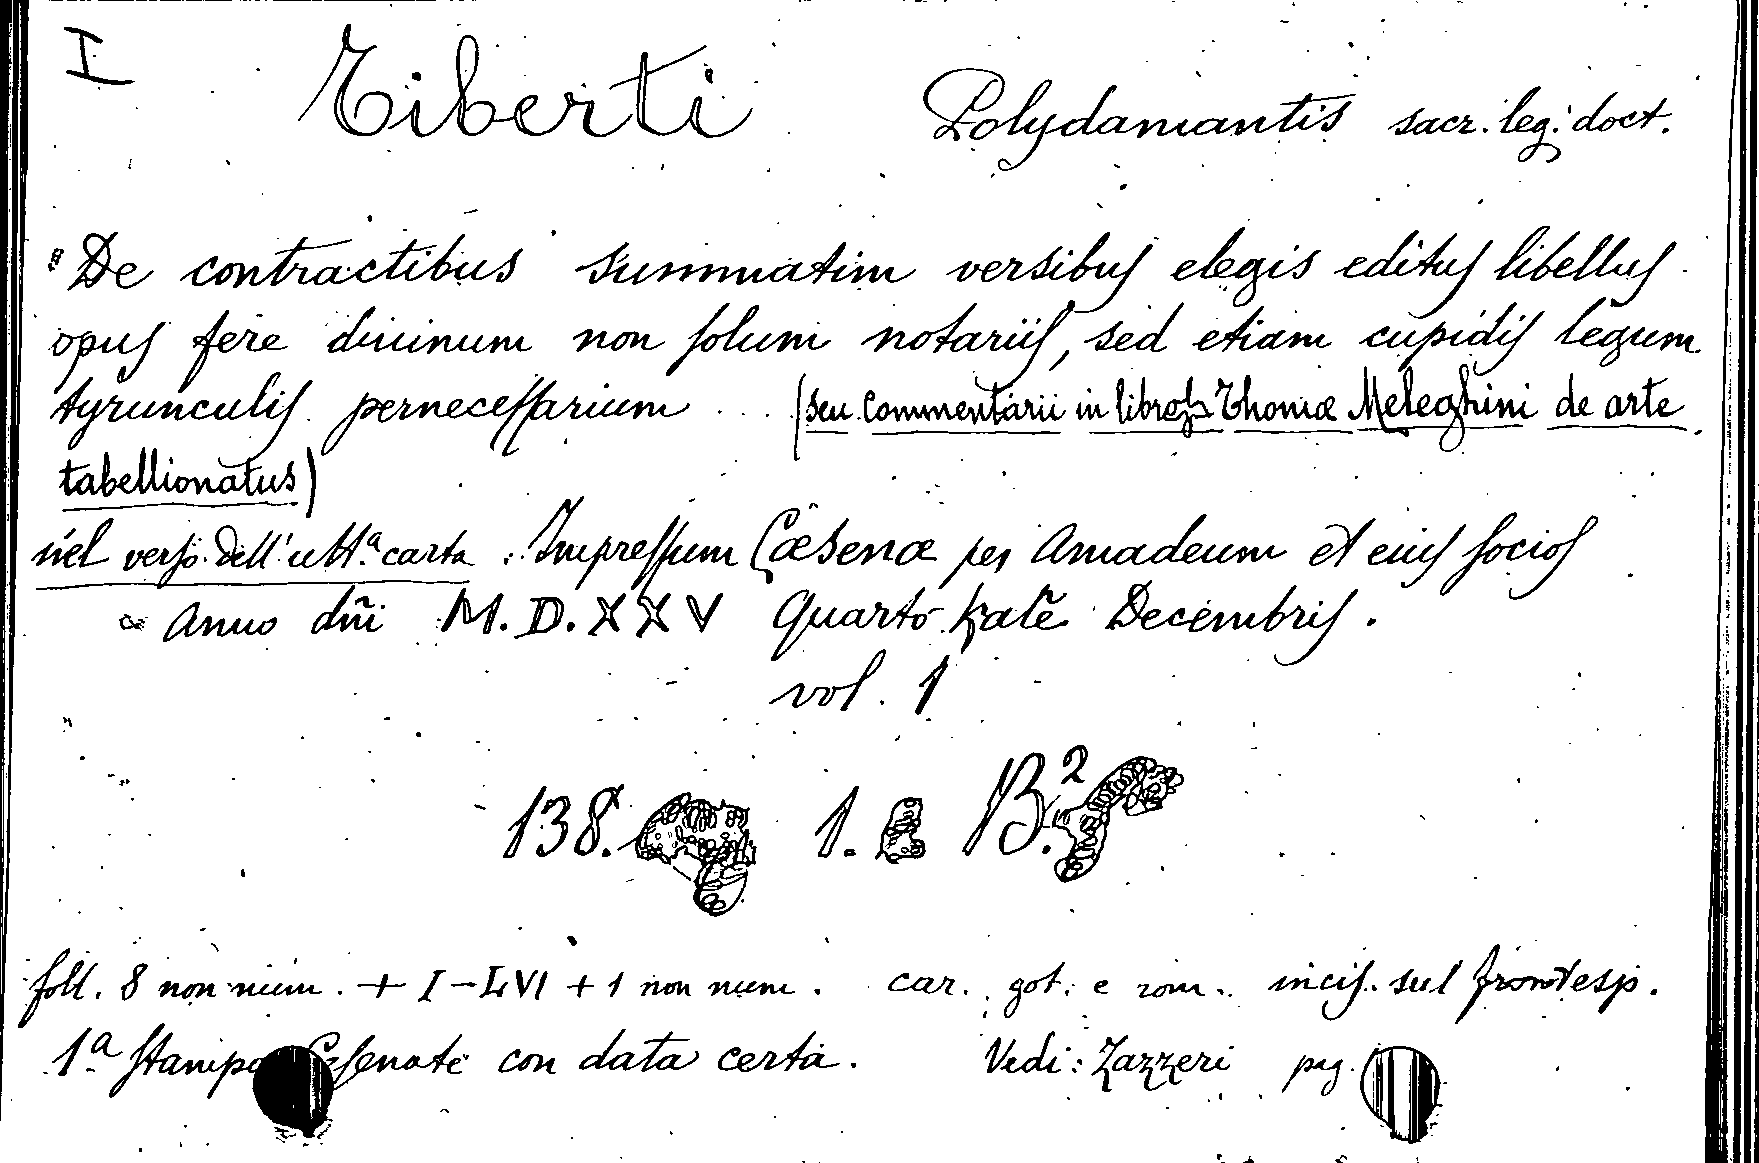 I Tiberti Polydamantis sacr. leg. doct.
"De contractibus summatim versibus elegis editus libellus
opus fere diuinum non solum notariis, sed etiam cupidis legum
tyrunculis pernecessarium ... (seu Commentarii in libros Thomæ Meleghini de arte
tabellionatus)
nel verso dell'ult.ª carta : Impressum Cæsenæ per Amadeum et eius socios
Anno dñi M.D.XXV Quarto Kalẽ Decembris.
vol. 1
138. 1. B.2
foll. 8 non num. + I-LVI + 1 non num. car. got. e rom. incis. sul frontesp.
1ª Stampa Cesenate con data certa. Vedi: Zazzeri pag.